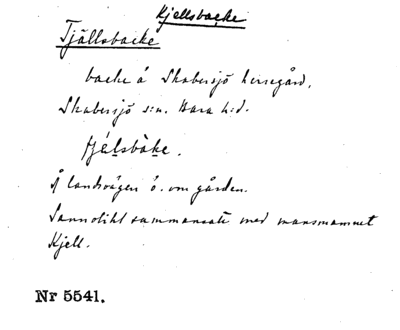 Kjellsbacke
Tjällsbacke
backe å Skabersjö herregård,
Skabersjö s:n. Bara h:d.
På landsvägen ö. om gården.
Sannolikt sammansatt med mansnamnet
Kjell.
Nr 5541.